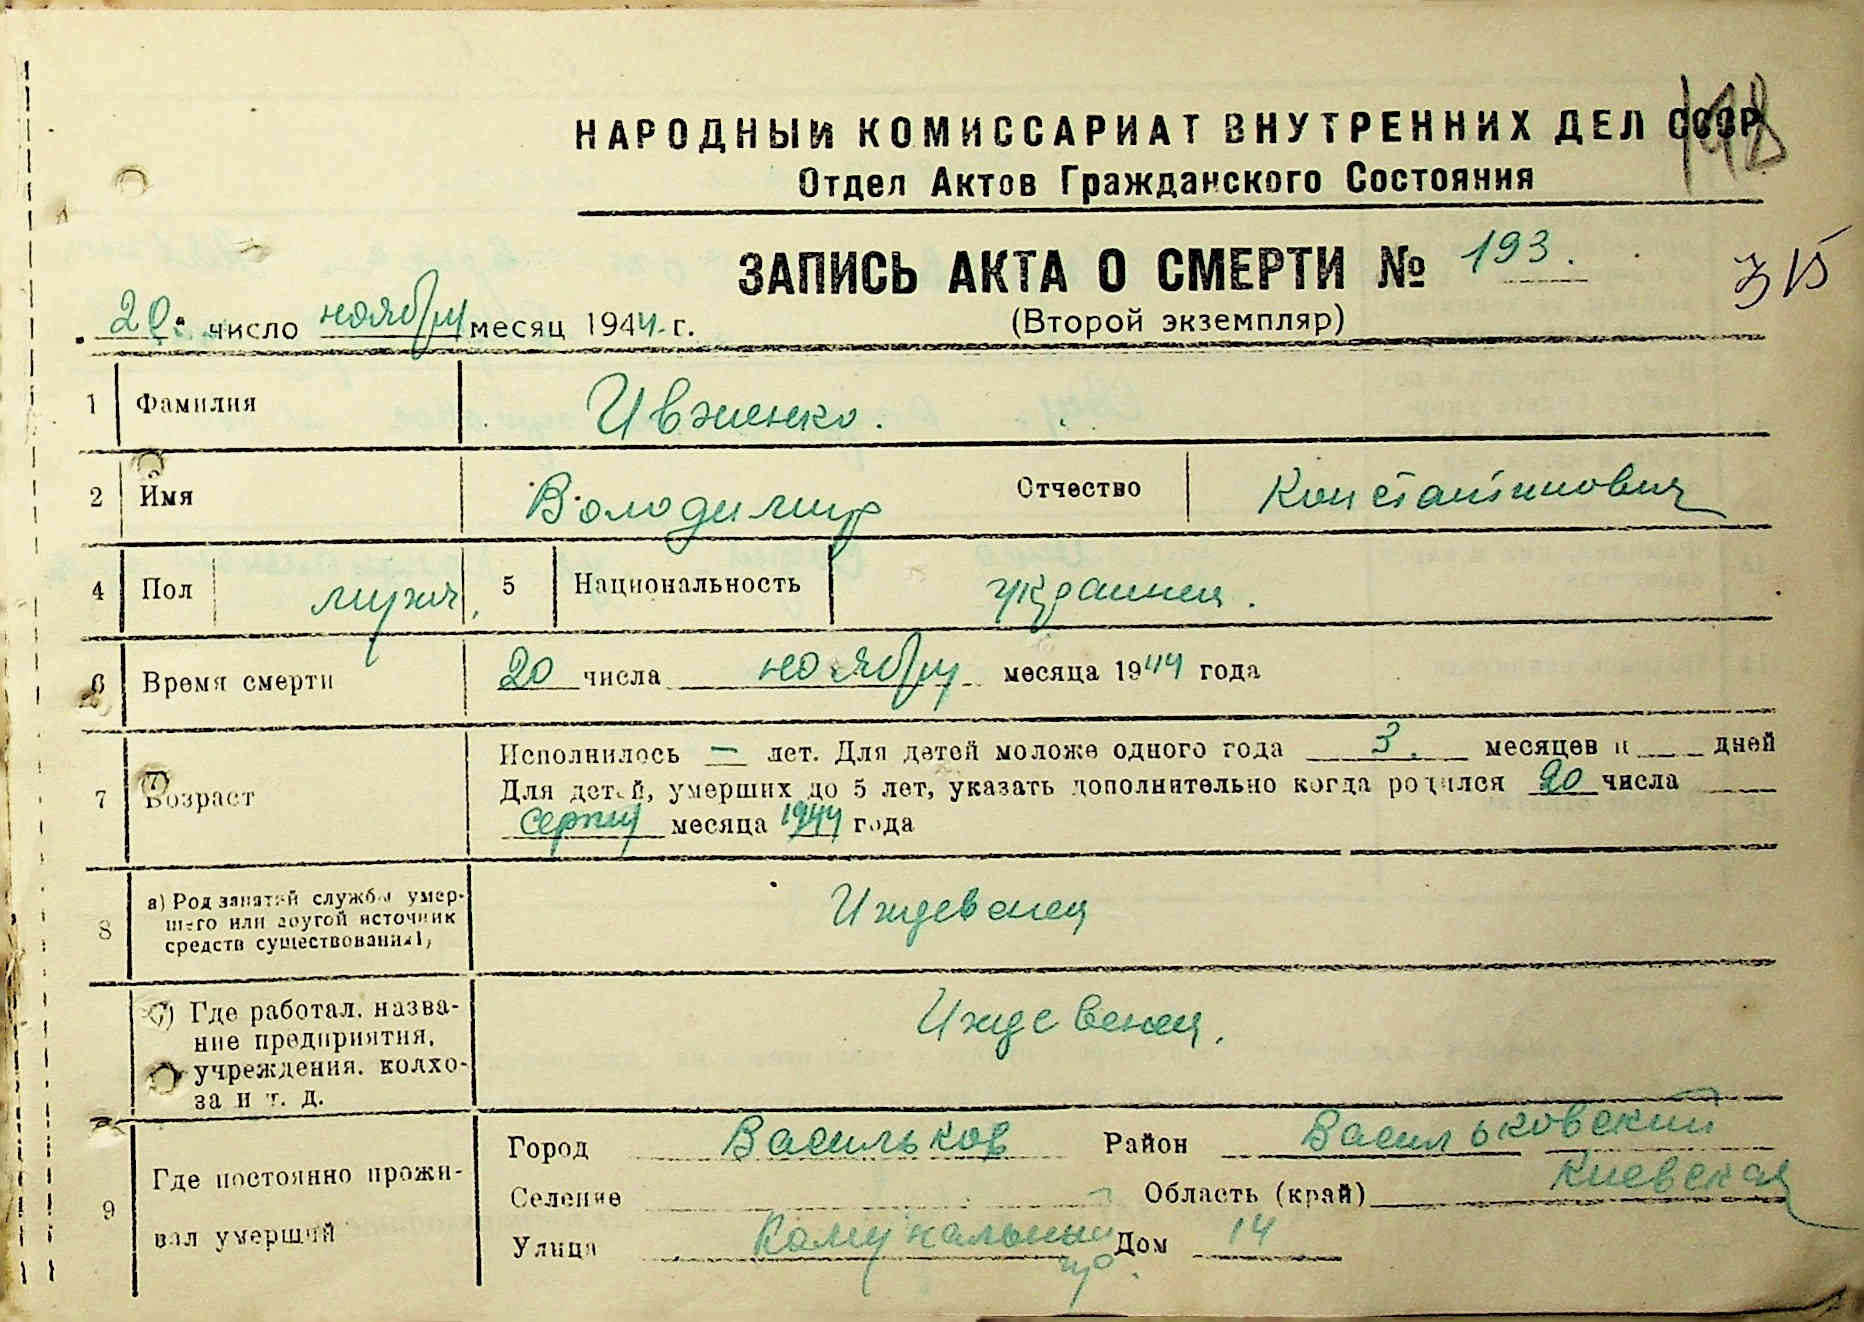 НАРОДНЫЙ КОМИССАРИАТ ВНУТРЕННИХ ДЕЛ СССР
Отдел Актов Гражданского Состояния
ЗАПИСЬ АКТА О СМЕРТИ № 193.
315
20 число ноября месяц 1944 г. (Второй экземпляр)
1 Фамилия Ивженко.
2 Имя Володимир Отчество Константинович
4 Пол мужч. 5 Национальность украинец.
6 Время смерти 20 числа ноября месяца 1944 года
Исполнилось — лет. Для детей моложе одного года 3. месяцев и дней
7 Возраст Для детей, умерших до 5 лет, указать дополнительно когда родился 20 числа
серпня месяца 1944 года
8 а) Род занятий службы умер-
шего или другой источник
средств существования), Иждевенец
б) Где работал, назва-
ние предприятия,
учреждения, колхо-
за и т. д. Иждевенец.
Город Васильков Район Васильковский
9 Где постоянно прожи-
вал умерший
Селение Область (край) Киевская
Улица Дом 14